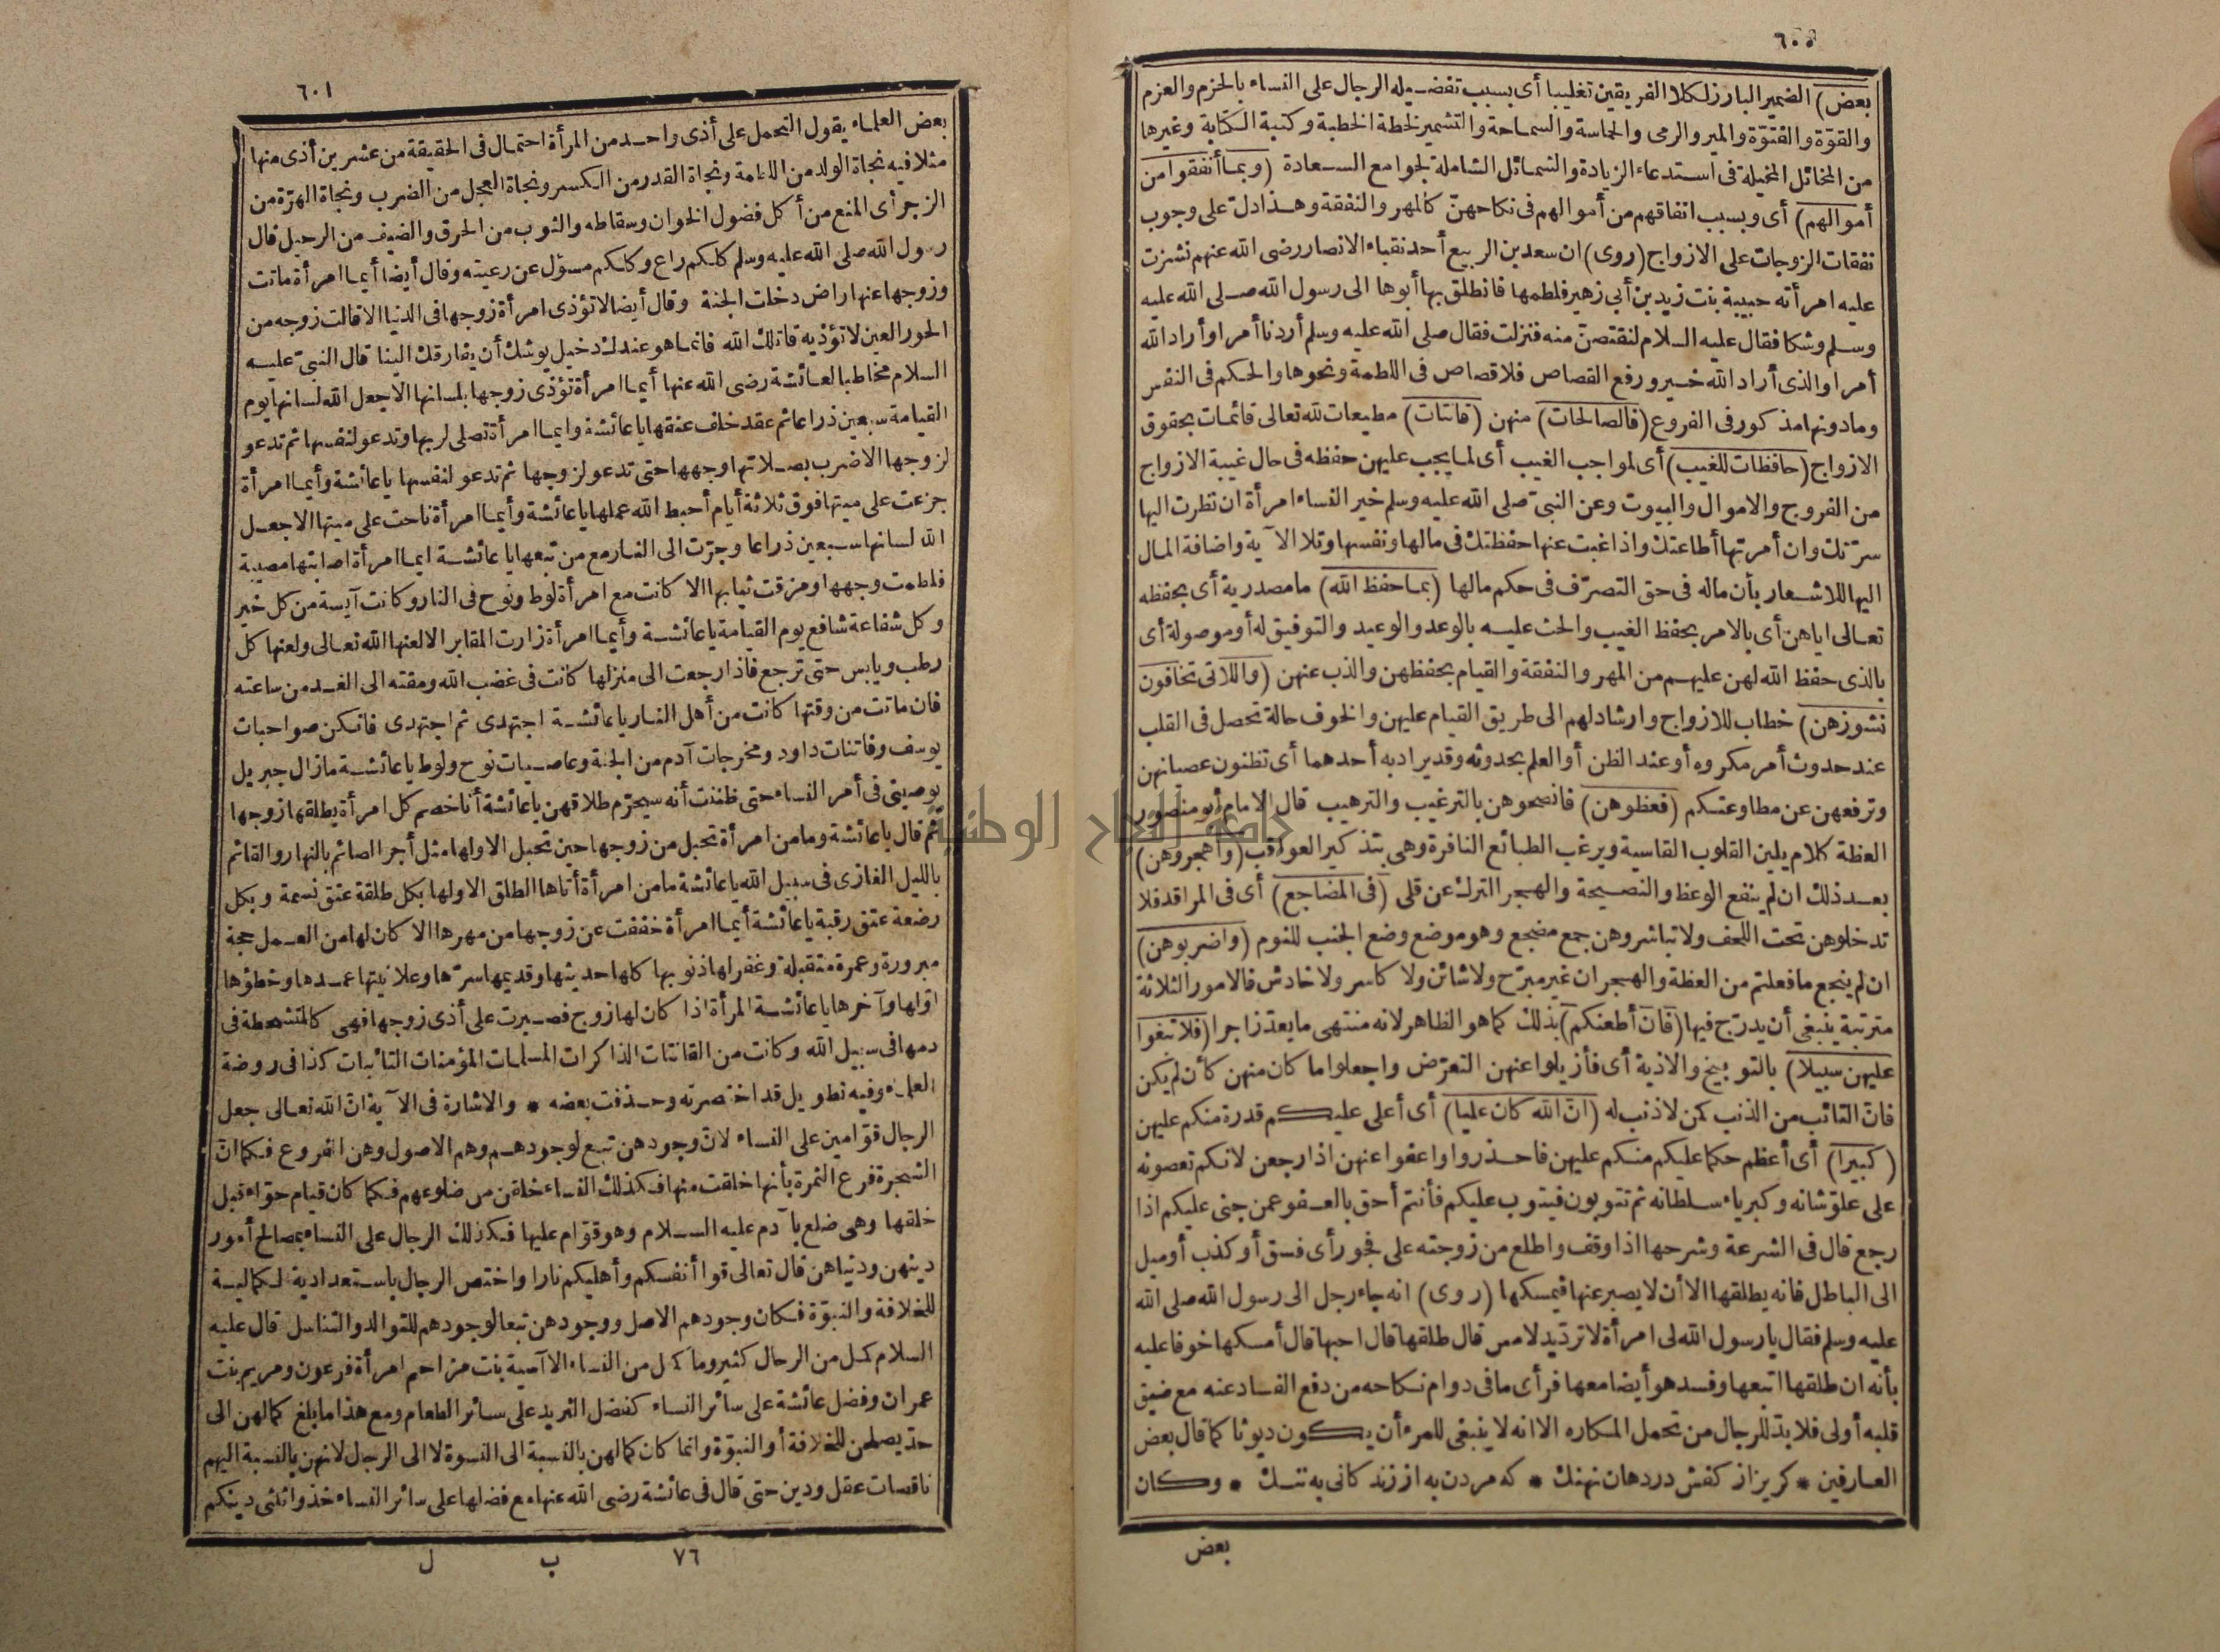 ٦٠٠
بعض) الضمير البارز لكلا الفريقين تغليبا أى بسبب تفضيله الرجال على النساء بالحزم والعزم
والقوّة والفتوّة والمير والرمى والحماسة والسماحة والتشمير لخطة الخطبة وكتبة الكتابة وغيرها
من المخائل المخيلة فى استدعاء الزيادة والشمائل الشاملة لجوامع السعادة (وبما أنفقوا من
أموالهم) أى وبسبب انفاقهم من أموالهم فى نكاحهنّ كالمهر والنفقة وهذا دلّ على وجوب
نفقات الزوجات على الازواج (روى) ان سعد بن الربيع أحد نقباء الانصار رضى الله عنهم نشزت
عليه امرأته حبيبة بنت زيد بن أبى زهير فلطمها فانطلق بها أبوها الى رسول الله صلى الله عليه
وسلم وشكا فقال عليه السلام لنقتصنّ منه فنزلت فقال صلى الله عليه وسلم أردنا أمرا وأراد الله
أمرا والذى أراد الله خير ورفع القصاص فلا قصاص فى اللطمة ونحوها والحكم فى النفس
وما دونها مذكور فى الفروع (فالصالحات) منهن (قانتات) مطيعات لله تعالى قائمات بحقوق
الازواج (حافظات للغيب) أى لمواجب الغيب أى لما يجب عليهن حفظه فى حال غيبة الازواج
من الفروج والاموال والبيوت وعن النبىّ صلى الله عليه وسلم خير النساء امرأة ان نظرت اليها
سرّتك وان أمرتها أطاعتك واذا غبت عنها حفظتك فى مالها ونفسها وتلا الآية واضافة المال
اليها للاشعار بأن ماله فى حق التصرّف فى حكم مالها (بما حفظ الله) ما مصدرية أى بحفظه
تعالى اياهن أى بالامر بحفظ الغيب والحث عليه بالوعد والوعيد والتوفيق له أو موصولة أى
بالذى حفظ الله لهن عليهم من المهر والنفقة والقيام بحفظهن والذب عنهن (واللاتى تخافون
نشوزهن) خطاب للازواج وارشاد لهم الى طريق القيام عليهن والخوف حالة تحصل فى القلب
عند حدوث أمر مكروه أو عند الظن أو العلم بحدوثه وقد يراد به أحدهما أى تظنون عصيانهن
وترفعهن عن مطاوعتكم (فعظوهن) فانصحوهن بالترغيب والترهيب قال الامام أبو منصور
العظة كلام يلين القلوب القاسية ويرغب الطبائع النافرة وهى بتذكير العواقب (واهجروهن)
بعد ذلك ان لم ينفع الوعظ والنصيحة والهجر الترك عن قلى (فى المضاجع) أى فى المراقد فلا
تدخلوهن تحت اللحف ولا تباشروهن جمع مضجع وهو موضع وضع الجنب للنوم (واضربوهن)
ان لم ينجع ما فعلتم من العظة والهجران غير مبرّح ولا شائن ولا كاسر ولا خادش فالامور الثلاثة
مترتبة ينبغى أن يدرّج فيها (فان أطعنكم) بذلك كما هو الظاهر لانه منتهى ما يعدّ زاجرا (فلا تبغوا
عليهن سبيلا) بالتوبيخ والاذية أى فأزيلوا عنهن التعرّض واجعلوا ما كان منهن كأن لم يكن
فان التائب من الذنب كمن لا ذنب له (انّ الله كان عليا) أى أعلى عليكم قدرة منكم عليهن
(كبيرا) أى أعظم حكما عليكم منكم عليهن فاحذروا واعفوا عنهن اذا رجعن لانكم تعصونه
على علوّ شانه وكبرياء سلطانه ثم تتوبون فيتوب عليكم فأنتم أحق بالعفو عمن جنى عليكم اذا
رجع قال فى الشرعة وشرحها اذا وقف واطلع من زوجته على فجور أى فسق أو كذب أو ميل
الى الباطل فانه يطلقها الا أن لا يصبر عنها فيمسكها (روى) انه جاء رجل الى رسول الله صلى الله
عليه وسلم فقال يا رسول الله لى امرأة لا تردّ يد لامس قال طلقها قال احبها قال أمسكها خوفا عليه
بأنه ان طلقها اتبعها وفسد هو أيضا معها فرأى ما فى دوام نكاحه من دفع الفساد عنه مع ضيق
قلبه أولى فلا بدّ للرجال من تحمل المكاره الا انه لا ينبغى للمرء أن يكون ديوثا كما قال بعض
العارفين * كريز از كفش دردهان نهنك * كه مردن به از زندكانى به ننك * وكان
بعض
٦٠١
بعض العلماء يقول التحمل على أذى واحد من المرأة احتمال فى الحقيقة من عشرين أذى منها
مثلا فيه نجاة الولد من اللطمة ونجاة القدر من الكسر ونجاة العجل من الضرب ونجاة الهرّة من
الزجر أى المنع من أكل فضول الخوان وسقاطه والثوب من الحرق والضيف من الرحيل قال
رسول الله صلى الله عليه وسلم كلكم راع وكلكم مسؤل عن رعيته وقال أيضا أيما امرأة ماتت
وزوجها عنها راض دخلت الجنة وقال أيضا لا تؤذى امرأة زوجها فى الدنيا الا قالت زوجه من
الحور العين لا تؤذيه قاتلك الله فانما هو عندك دخيل يوشك أن يفارقك الينا قال النبىّ عليه
السلام مخاطبا لعائشة رضى الله عنها أيما امرأة تؤذى زوجها بلسانها الا جعل الله لسانها يوم
القيامة سبعين ذراعا ثم عقد خلف عنقها يا عائشة وايما امرأة تصلى لربها وتدعو لنفسها ثم تدعو
لزوجها الا ضرب بصلاتها وجهها حتى تدعو لزوجها ثم تدعو لنفسها يا عائشة وأيما امرأة
جزعت على ميتها فوق ثلاثة أيام أحبط الله عملها يا عائشة وأيما امرأة ناحت على ميتها الا جعل
الله لسانها سبعين ذراعا وجرّت الى النار مع من تبعها يا عائشة ايما امرأة اصابتها مصيبة
فلطمت وجهها ومزقت ثيابها الا كانت مع امرأة لوط ونوح فى النار وكانت آيسة من كل خير
وكل شفاعة شافع يوم القيامة يا عائشة وأيما امرأة زارت المقابر الا لعنها الله تعالى ولعنها كل
رطب ويابس حتى ترجع فاذا رجعت الى منزلها كانت فى غضب الله ومقته الى الغد من ساعته
فان ماتت من وقتها كانت من أهل النار يا عائشة اجتهدى ثم اجتهدى فانكن صواحبات
يوسف وفاتنات داود ومخرجات آدم من الجنة وعاصيات نوح ولوط يا عائشة مازال جبريل
يوصينى فى أمر النساء حتى ظننت أنه سيحرّم طلاقهن يا عائشة أنا خصم كل امرأة يطلقها زوجها
ثم قال يا عائشة وما من امرأة تحبل من زوجها حين تحبل الا ولها مثل أجر الصائم بالنهار والقائم
بالليل الغازى فى سبيل الله يا عائشة ما من امرأة أتاها الطلق الا ولها بكل طلقة عتق نسمة وبكل
رضعة عتق رقبة يا عائشة أيما امرأة خففت عن زوجها من مهرها الا كان لها من العمل حجة
مبرورة وعمرة متقبلة وغفر لها ذنوبها كلها حديثها وقديمها سرّها وعلانيتها عمدها وخطؤها
اوّلها وآخرها يا عائشة المرأة اذا كان لها زوج فصبرت على أذى زوجها فهى كالمتشحطة فى
دمها فى سبيل الله وكانت من القانتات الذاكرات المسلمات المؤمنات التائبات كذا فى روضة
العلماء وفيه تطويل قد اختصرته وحذفت بعضه * والاشارة فى الآية انّ الله تعالى جعل
الرجال قوّامين على النساء لانّ وجودهن تبع لوجودهم وهم الاصول وهن الفروع فكما انّ
الشجرة فرع الثمرة بأنها خلقت منها فكذلك النساء خلقن من ضلوعهم فكما كان قيام حوّاء قبل
خلقها وهى ضلع بآدم عليه السلام وهو قوّام عليها فكذلك الرجال على النساء بمصالح أمور
دينهن ودنياهن قال تعالى قوا أنفسكم وأهليكم نارا واختص الرجال باستعدادية لكمالية
للخلافة والنبوّة فكان وجودهم الاصل ووجودهن تبعا لوجودهم للتوالد والتناسل قال عليه
السلام كمل من الرجال كثير وما كمل من النساء الا آسية بنت مزاحم امرأة فرعون ومريم بنت
عمران وفضل عائشة على سائر النساء كفضل الثريد على سائر الطعام ومع هذا ما بلغ كمالهن الى
حدّ يصلحن للخلافة أو النبوّة وانما كان كمالهن بالنسبة الى النسوة لا الى الرجال لانهن بالنسبة اليهم
ناقصات عقل ودين حتى قال فى عائشة رضى الله عنها مع فضلها على سائر النساء خذوا ثلثى دينكم
٧٦ ب ل
جامعة النجاح الوطنية